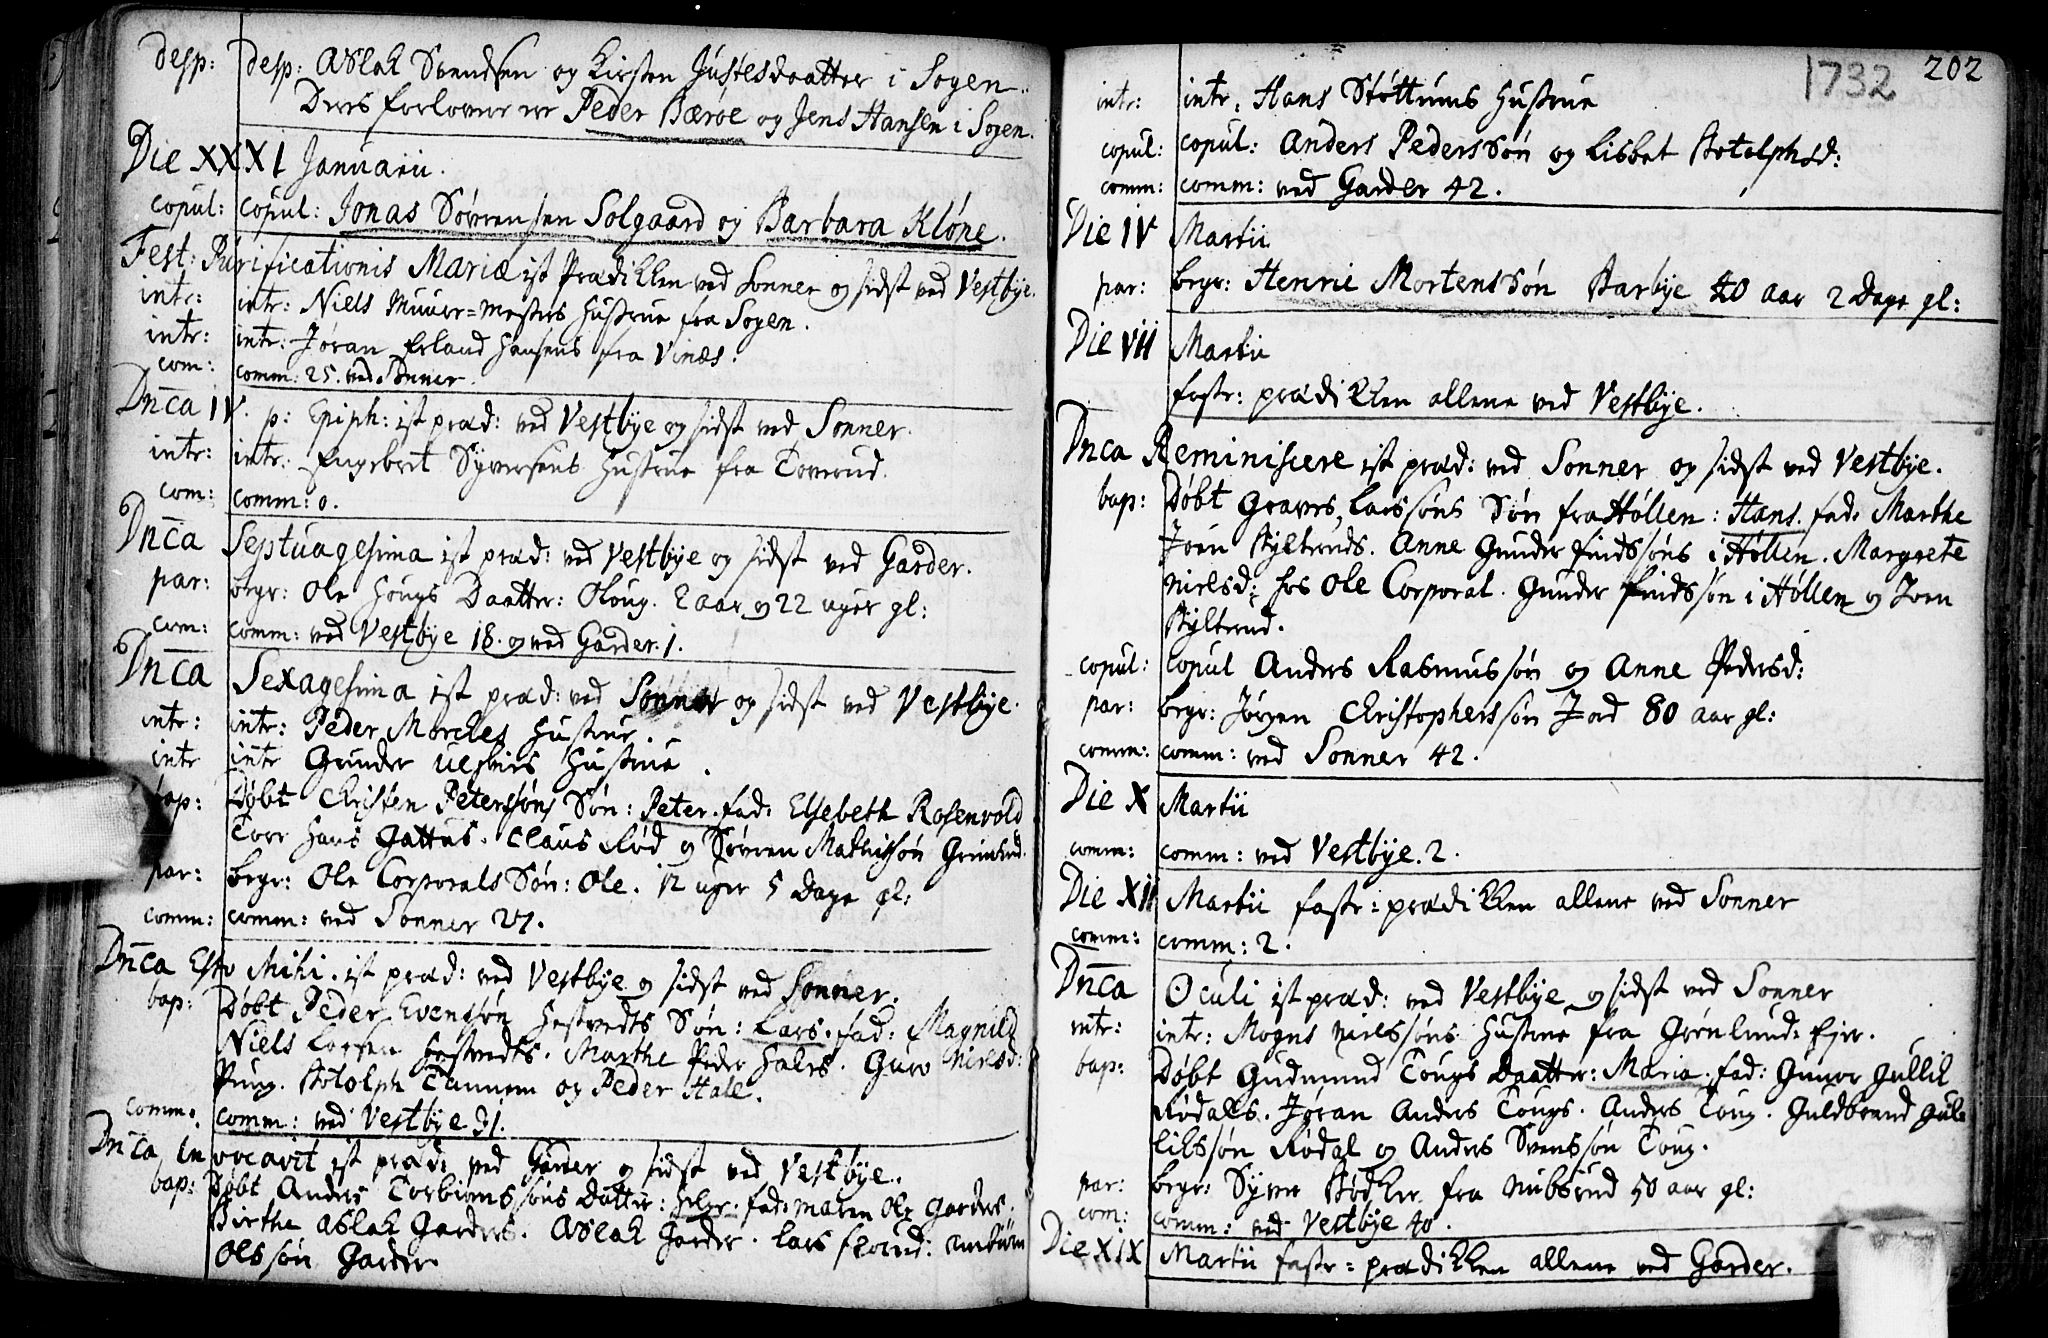 desp: desp: Aslak Svendsen og Kirsten Justesdaatter i Sogen
Deres forlover er Peder Bærøe og Jens Hansen i Sogen.
Die XXXI Januarii.
copul: copul: Jonas Sørrensen Solgaard og Barbara Kløne.
Fest: Purificationis Mariæ ist Prædikken ved Sonner og sidst ved Vestbye.
intr: intr: Niels Muuer=Mesters Hustrue fra Sogen.
intr: intr: Jøran Erland Hansens fra Vinæs.
com: comm: 25. ved Sonner.
Dnca IV. p: Epiph: ist præd: ved Vestbye og sidst ved Sonner.
intr: intr: Engebret Syversens Hustrue fra Toverud.
com: comm: 0.
Dnca Septuagesima ist præd: ved Vestbye og sidst ved Garder.
par: begr: Ole Hougs Daatter: Oloug. 2 aar og 22 uger gl:
com: comm: ved Vestbye 18. og ved Garder. 1.
Dnca Sexagesima ist præd: ved Sonner og sidst ved Vestbye.
intr: intr: Peder Morckes Hustrue.
intr intr Gunder Hustrue.
bap: Døbt Christen Peterssøns Søn: Peter. fad: Elsebeth Rosenvold
Torr Hans Gattus. Claus Rød og Sørren Mathissøn
par: begr: Ole Corporals Søn: Ole. 12 uger 5 Dage gl:
comm: comm: ved Sonner 27.
Dnca Esto Mihi. ist præd: ved Vestbye og sidst ved Sonner.
bap: Døbt Peder Evenssøn Hestvedts Søn: Lars. fad: Magnild
Niels Hestvedts. Marthe Peder Halls. Guro Nielsd:
Pung. Botolph Tannem og Peder Hall.
comm. comm: ved Vestbye 31.
Dnca Invocavit ist præd: ved Garder og sidst ved Vestbye.
bap: Døbt Anders Torbiørnssøns Datter: fad: Maren Ole Garders.
Birthe Aslak Garders. Aslak Garder. Lars
Olssøn Garder
202
1732
intr: intr: Hans Støttums Hustrue
copul: copul: Anders Pederssøn og Lisbet Botolphsd:
comm: comm: ved Garder 42.
Die IV Martii
par: begr: Henrie Mortenssøn Barbye 40 aar 2 Dage gl:
Die VII Martii
faste: prædikken allene ved Vestbye.
Dnca Reminiscere ist præd: ved Sonner og sidst ved Vestbye.
bap: Døbt Graves Larssøns Søn fra Høllen: Hans. fad: Marthe
Joen Kyltruds. Anne Gunder Findssøns i Høllen. Margrete
Nielsd: hos Ole Corporal. Gunder Findssøn i Høllen og Joen
Kyltrud.
copul: copul Anders Rasmussøn og Anne Pedersd:
par: begr: Jørgen Christopherssøn Jod 80 aar gl:
comm: comm: ved Sonner 42.
Die X Martii
comm: comm: ved Vestbye. 2.
Die XII Martii faste: prædikken allene ved Sonner
comm: comm: 2.
Dnca Oculi ist præd: ved Vestbye og sidst ved Sonner
intr: intr: Mogns Nielssøns Hustrue fra Grønlund: Ejer.
bap: Døbt Gudmund Tougs Daatter: Maria. fad: Gunor Gullik
Rødals. Jøran Anders Tougs. Anders Toug. Guldbrand Gul
likssøn Rødal og Anders Svenssøn Toug.
par: begr: Syver Bødker fra Nubsrud 50 aar gl:
com: comm: ved Vestbye 40.
Die XIX Martii faste: prædikken allene ved Garder.